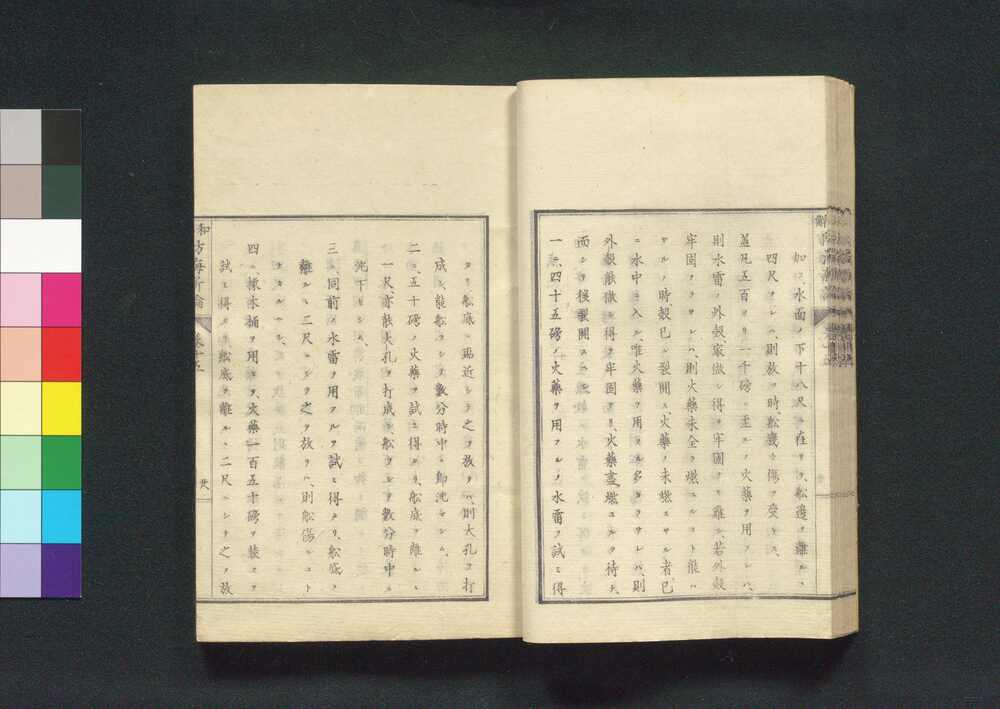 如シ水面ノ下十八尺ニ在リテ、舩邊ヲ離ルヽ
四尺ナレハ、則放ツ時、舩幾ト傷ヲ受ケス、
蓋凡五百ヨリ一千磅ニ至ルノ火藥ヲ用フレハ、
則水雷ノ外殼最做シ得テ牢固ナリ難シ、若外殼
牢固ナラサレハ、則火藥未全ク燃エルコト能ハ
サルノ時、殼已ニ裂開ス、火藥ノ未燃エサル者、已
ニ水中ニ入ル、唯火藥ヲ用フル多キヲサレハ、則
外殼能做シ得テ牢固ナリ、火藥盡燃エルヲ待チ、
而シテ後裂開ス、
一ニ、四十五磅ノ火藥ヲ用フルノ水雷ヲ試ミ得
タリ、舩底ニ貼近シテ之ヲ放タハ、則大孔ヲ打
成シ、能舩ヲシテ數分時中ニ即沈マシム、
二ニ、五十磅ノ火藥ヲ試ミ得タリ、舩底ヲ離レヽ
一尺、亦能大孔ヲ打成シ、舩ヲシテ數分時中ニ
沈下セシム、
三ニ、同前ノ水雷ヲ用フルヲ試ミ得タリ、舩底ヲ
離ルヽ二尺ニシテ之ヲ放ツハ、則舩傷ルコト
大キカラス、
四ニ、椽木桶ヲ用ヰテ、火藥一百五十磅ヲ裝ヒテ
試ミ得タリ、舩底ヲ離ルヽ二尺ニシテ之ヲ放
防海新論
卷十五